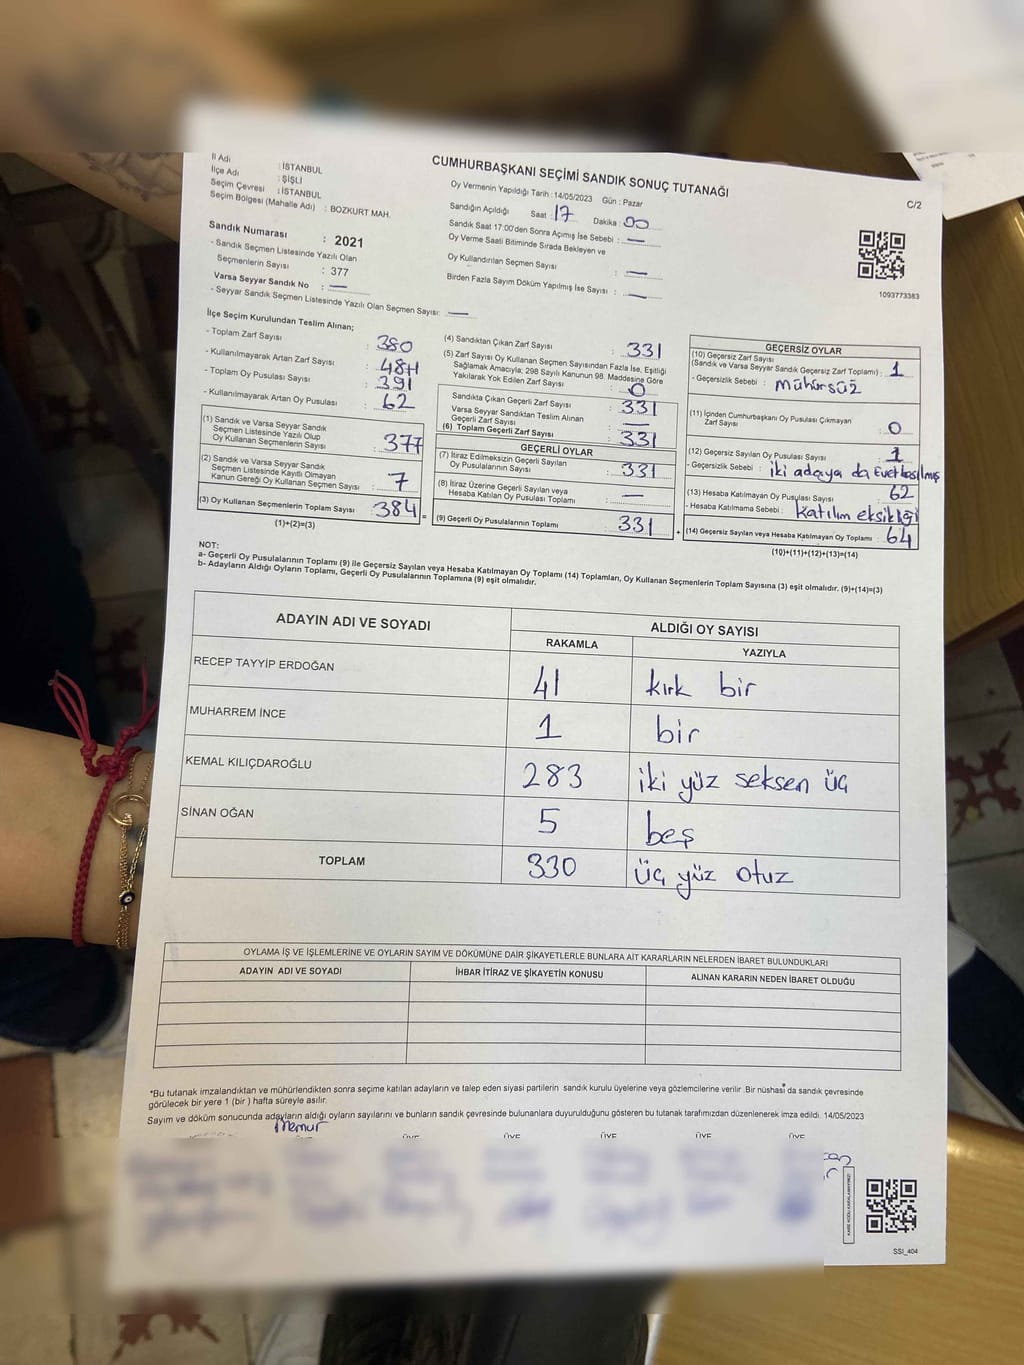 CUMHURBAŞKANI SEÇİMİ SANDIK SONUÇ TUTANAĞI
C/2
İl Adı : İSTANBUL
İlçe Adı : ŞİŞLİ
Seçim Çevresi : İSTANBUL
Seçim Bölgesi (Mahalle Adı) : BOZKURT MAH.
Sandık Numarası : 2021
- Sandık Seçmen Listesinde Yazılı Olan
Seçmenlerin Sayısı : 377
Varsa Seyyar Sandık No : —
- Seyyar Sandık Seçmen Listesinde Yazılı Olan Seçmen Sayısı: —
Oy Vermenin Yapıldığı Tarih : 14/05/2023 Gün : Pazar
Sandığın Açıldığı Saat : 17 Dakika : 00
Sandık Saat 17:00'den Sonra Açımış İse Sebebi : —
Oy Verme Saati Bitiminde Sırada Bekleyen ve
Oy Kullandırılan Seçmen Sayısı : —
Birden Fazla Sayım Döküm Yapılmış İse Sayısı : —
1093773383
İlçe Seçim Kurulundan Teslim Alınan;
- Toplam Zarf Sayısı : 380
- Kullanılmayarak Artan Zarf Sayısı :
- Toplam Oy Pusulası Sayısı : 391
- Kullanılmayarak Artan Oy Pusulası : 62
(1) Sandık ve Varsa Seyyar Sandık
Seçmen Listesinde Yazılı Olup
Oy Kullanan Seçmenlerin Sayısı : 377
(2) Sandık ve Varsa Seyyar Sandık
Seçmen Listesinde Kayıtlı Olmayan
Kanun Gereği Oy Kullanan Seçmen Sayısı : 7
(3) Oy Kullanan Seçmenlerin Toplam Sayısı : 384 =
(1)+(2)=(3)
(4) Sandıktan Çıkan Zarf Sayısı : 331
(5) Zarf Sayısı Oy Kullanan Seçmen Sayısından Fazla İse, Eşitliği
Sağlamak Amacıyla; 298 Sayılı Kanunun 98. Maddesine Göre
Yakılarak Yok Edilen Zarf Sayısı : 0
Sandıkta Çıkan Geçerli Zarf Sayısı : 331
Varsa Seyyar Sandıktan Teslim Alınan
Geçerli Zarf Sayısı : —
(6) Toplam Geçerli Zarf Sayısı : 331
GEÇERLİ OYLAR
(7) İtiraz Edilmeksizin Geçerli Sayılan
Oy Pusulalarının Sayısı : 331
(8) İtiraz Üzerine Geçerli Sayılan veya
Hesaba Katılan Oy Pusulası Toplamı : —
(9) Geçerli Oy Pusulalarının Toplamı 331 +
GEÇERSİZ OYLAR
(10) Geçersiz Zarf Sayısı
(Sandık ve Varsa Seyyar Sandık Geçersiz Zarf Toplamı) : 1
- Geçersizlik Sebebi : mühürsüz
(11) İçinden Cumhurbaşkanı Oy Pusulası Çıkmayan
Zarf Sayısı : 0
(12) Geçersiz Sayılan Oy Pusulası Sayısı : 1
- Geçersizlik Sebebi : iki adaya da Evet basılmış
(13) Hesaba Katılmayan Oy Pusulası Sayısı : 62
- Hesaba Katılmama Sebebi : katılım eksikliği
(14) Geçersiz Sayılan veya Hesaba Katılmayan Oy Toplamı : 64
(10)+(11)+(12)+(13)=(14)
NOT:
a- Geçerli Oy Pusulaları Toplamı (9) ile Geçersiz Sayılan veya Hesaba Katılmayan Oy Toplamı (14) Toplamları, Oy Kullanan Seçmenlerin Toplam Sayısına (3) eşit olmalıdır. (9)+(14)=(3)
b- Adayların Aldığı Oyların Toplamı, Geçerli Oy Pusulalarının Toplamına (9) eşit olmalıdır.
ADAYIN ADI VE SOYADI ALDIĞI OY SAYISI
RAKAMLA YAZIYLA
RECEP TAYYİP ERDOĞAN 41 kırk bir
MUHARREM İNCE 1 bir
KEMAL KILIÇDAROĞLU 283 iki yüz seksen üç
SİNAN OĞAN 5 beş
TOPLAM 330 üç yüz otuz
OYLAMA İŞ VE İŞLEMLERİNE VE OYLARIN SAYIM VE DÖKÜMÜNE DAİR ŞİKAYETLERLE BUNLARA AİT KARARLARIN NELERDEN İBARET BULUNDUKLARI
ADAYIN ADI VE SOYADI İHBAR İTİRAZ VE ŞİKAYETİN KONUSU ALINAN KARARIN NEDEN İBARET OLDUĞU
*Bu tutanak imzalandıktan ve mühürlendikten sonra seçime katılan adayların ve talep eden siyasi partilerin sandık kurulu üyelerine veya gözlemcilerine verilir. Bir nüshası da sandık çevresinde
görülecek bir yere 1 (bir) hafta süreyle asılır.
Sayım ve döküm sonucunda adayların aldığı oyların sayılarını ve bunların sandık çevresinde bulunanlara duyurulduğunu gösteren bu tutanak tarafımızdan düzenlenerek imza edildi. 14/05/2023
Memur
ÜYE ÜYE ÜYE ÜYE ÜYE
SSI_404